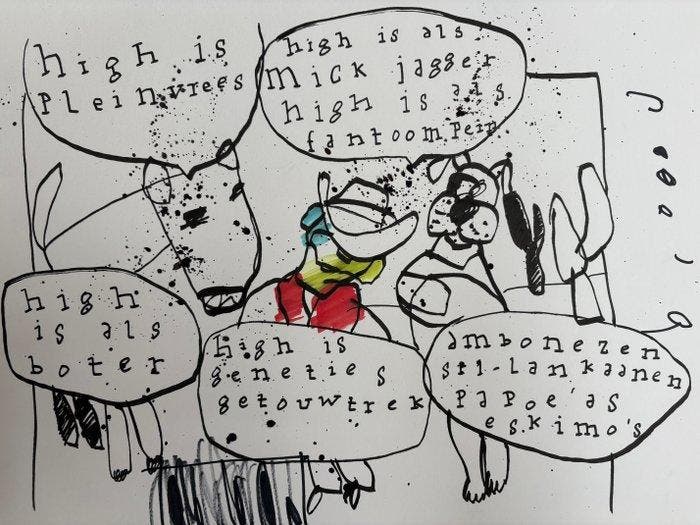 high is
Pleinvrees
high is als
Mick jagger
high is als
fantoompein
high
is als
boter
high is
geneties
getouwtrek
ambonezen
sri-lankaanen
papoe'as
eskimo's